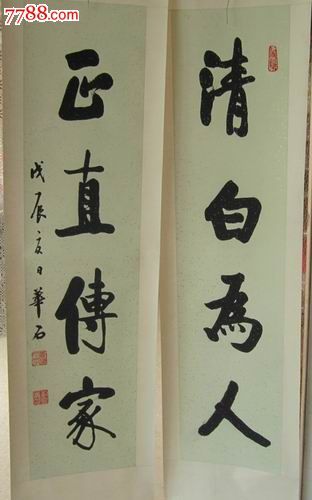 7788.com
清白為人
正直傳家
戊辰
日華石